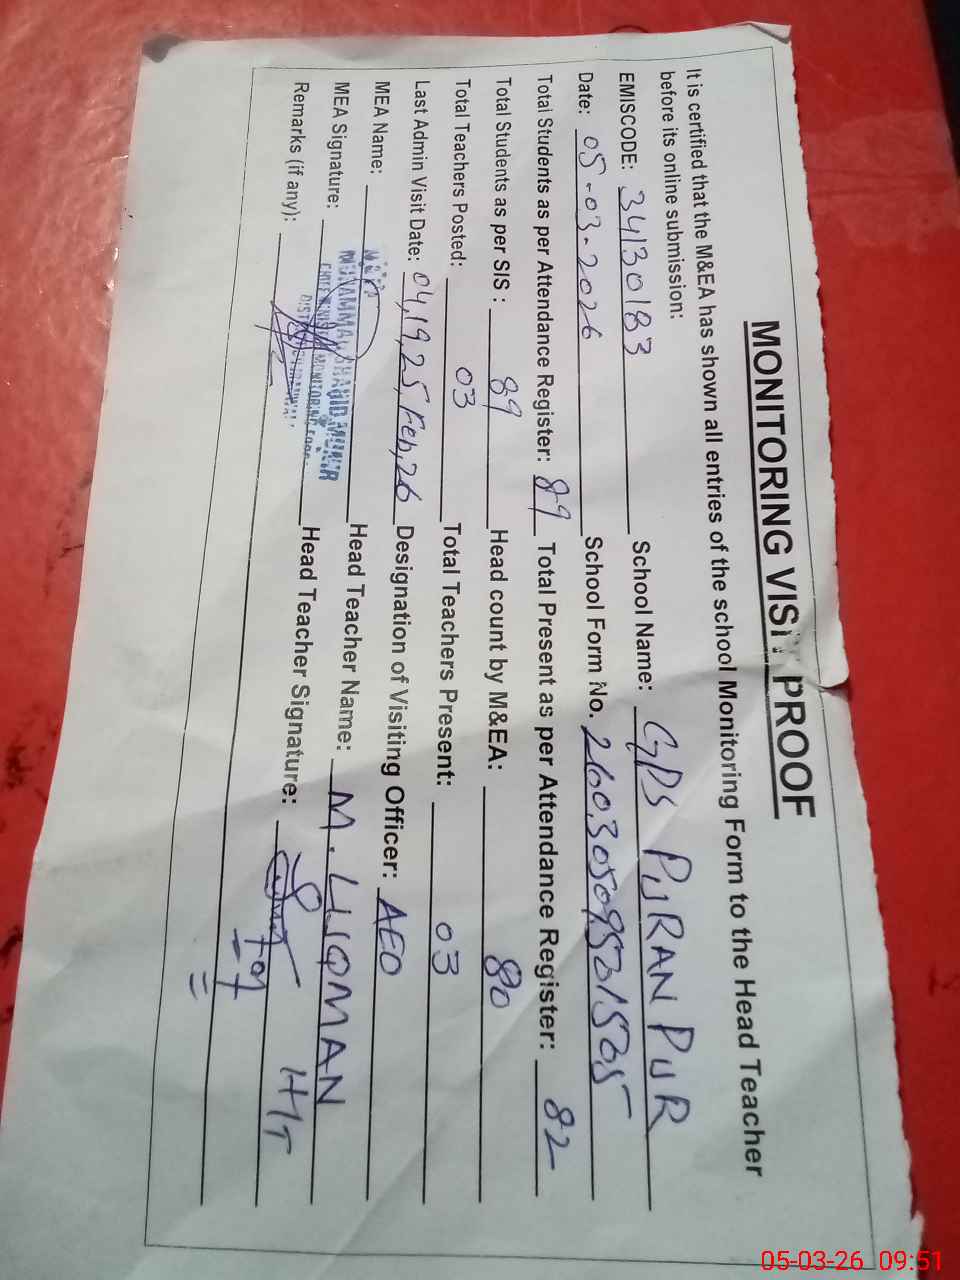 MONITORING VISIT PROOF
It is certified that the M&EA has shown all entries of the school Monitoring Form to the Head Teacher
before its online submission:
EMISCODE: 34130183 School Name: GPS PURAN PUR
Date: 05-03-2026 School Form No.
Total Students as per Attendance Register: 89 Total Present as per Attendance Register: 82
Total Students as per SIS : 89 Head count by M&EA: 80
Total Teachers Posted: 03 Total Teachers Present: 03
Last Admin Visit Date: 04,19,25, Feb, 26 Designation of Visiting Officer: AEO
MEA Name: Head Teacher Name: M. LUQMAN
MEA Signature: MUHAMMAD SHAHID MUNIR Head Teacher Signature: HT
Remarks (if any):
05-03-26 09:51